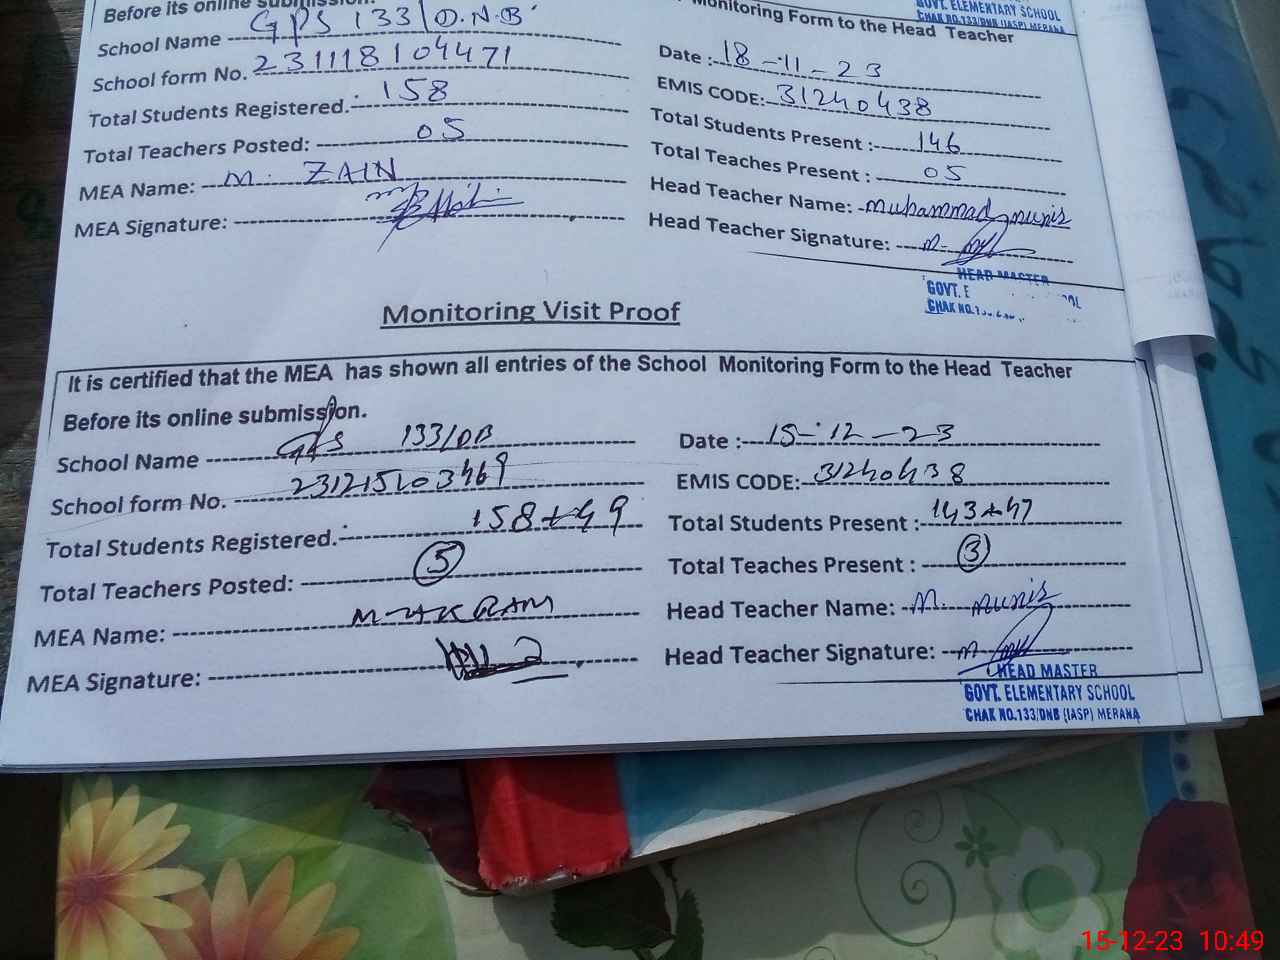 GOVT. ELEMENTARY SCHOOL
Before its online submission.
CHAK NO.133/DNB (IASP) MERANA
Monitoring Form to the Head Teacher
School Name GPS 133/D.N.B
Date : 18-11-23
School form No. 231118104471
EMIS CODE: 31240438
Total Students Registered. 158
Total Students Present : 146
Total Teachers Posted: 05
Total Teaches Present : 05
MEA Name: M. ZAIN
Head Teacher Name: Muhammad munir
MEA Signature:
Head Teacher Signature:
HEAD MASTER
GOVT. E
CHAK NO.
Monitoring Visit Proof
It is certified that the MEA has shown all entries of the School Monitoring Form to the Head Teacher
Before its online submission.
School Name GPS 133/DB
Date : 15-12-23
School form No. 231215103469
EMIS CODE: 31240438
Total Students Registered. 158+49
Total Students Present : 143+47
Total Teachers Posted: 5
Total Teaches Present : 3
MEA Name:
Head Teacher Name: M. munir
MEA Signature:
Head Teacher Signature:
HEAD MASTER
GOVT. ELEMENTARY SCHOOL
CHAK NO.133/DNB (IASP) MERANA
15-12-23 10:49